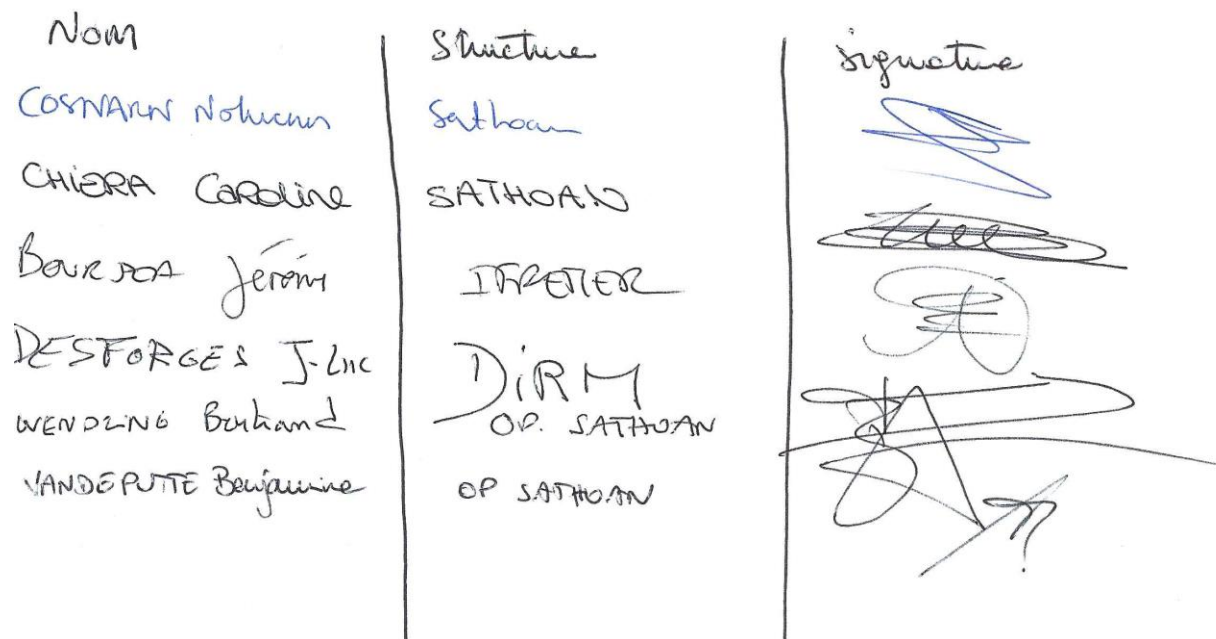 Nom Structure Signature
COSNARD Nolwenn Sathoan
CHIERA Caroline SATHOAN
BOURJEA Jérôme IFREMER
DESFORGES J-Luc DIRM
WENDLING Bertrand OP. SATHOAN
VANDEPUTTE Benjamine OP SATHOAN